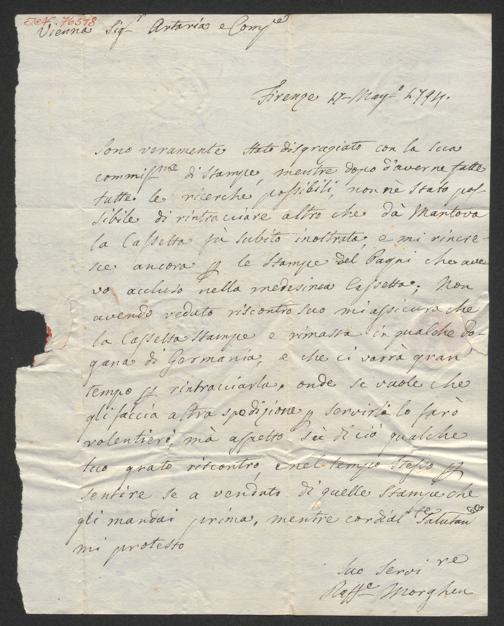 E.N. 76598
Vienna Sigr Artaria e Compe
Firenze 17 Mago 1794.
Sono veramente stato disgraziato con la sua
commissne di Stampe, mentre dopo d'averne fatte
tutte le ricerche possibili, non ne stato pos-
sibile di rintracciare altro che dà Mantova
la Cassetta fù subito inoltrata, e mi rincre-
sce ancora p le Stampe del Pagni che ave
vo accluso nella medesima Cassetta; Non
avendo veduto riscontro suo mi assicura che
la Cassetta Stampe e rimasta in qualche do-
gana di Germania, e che ci vorrà gran
tempo p rintracciarla, onde se vuole che
gli faccia altra spedizione p servirlo lo farò
volentieri, mà aspetto di ciò qualche
suo grato riscontro, e nel tempo stesso p
sentire se a venduto di quelle Stampe che
gli mandai prima, mentre cordialte Salutando
mi protesto
Suo Servire
Raffe Morghen